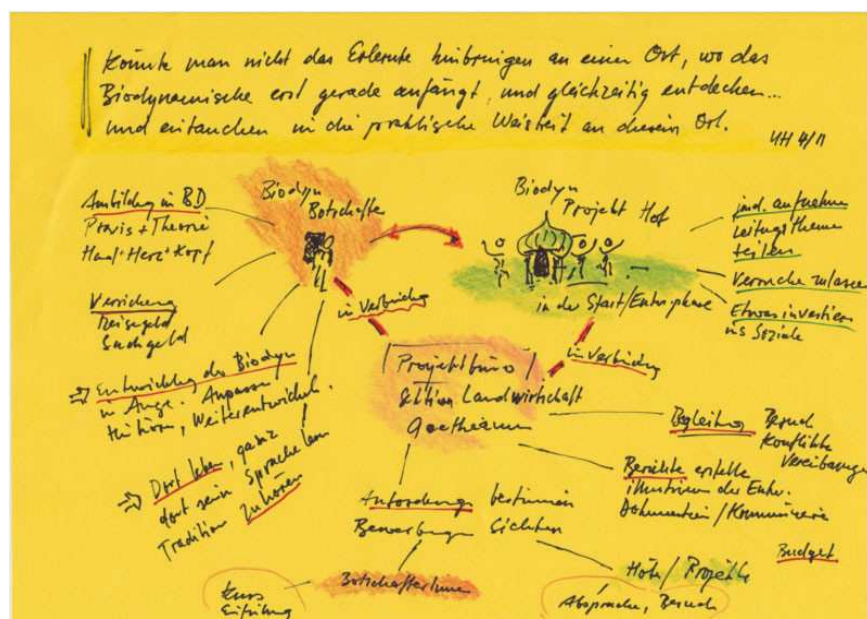 Könnte man nicht das Erlernte hinbringen an einen Ort, wo das
Biodynamische erst gerade anfängt, und gleichzeitig entdecken...
und eintauchen in die praktische Weisheit an diesem Ort.
UH 4/11
Ausbildung in BD
Praxis + Theorie
Hand + Herz + Kopf
Biodyn
Botschafter
Biodyn
Projekt Hof
in der Start/Entw.phase
ind. aufnehmen
Leitungsthemen
teilen
Versuche zulassen
Etwas investieren
ins Soziale
Versicherung
Reisegeld
Sackgeld
in Verbindung
in Verbindung
⇒ Entwicklung des Biodyn
in Auge. Anpassen
Weiterentwickel.
⇒ Dort leben, ganz
dort sein Sprache lern
Tradition Zuhören
Projektbüro
Sektion Landwirtschaft
Goetheanum
Begleitung Besuch
Konflikte
Vereinbarungen
Berichte erstellen
der Entw.
Dokumentieren/Kommunizieren
Budget
Anforderungen bestimmen
Bewerbungen sichten
BotschafterInnen
Kurs
Einführung
Höfe/Projekte
Absprache, Besuch